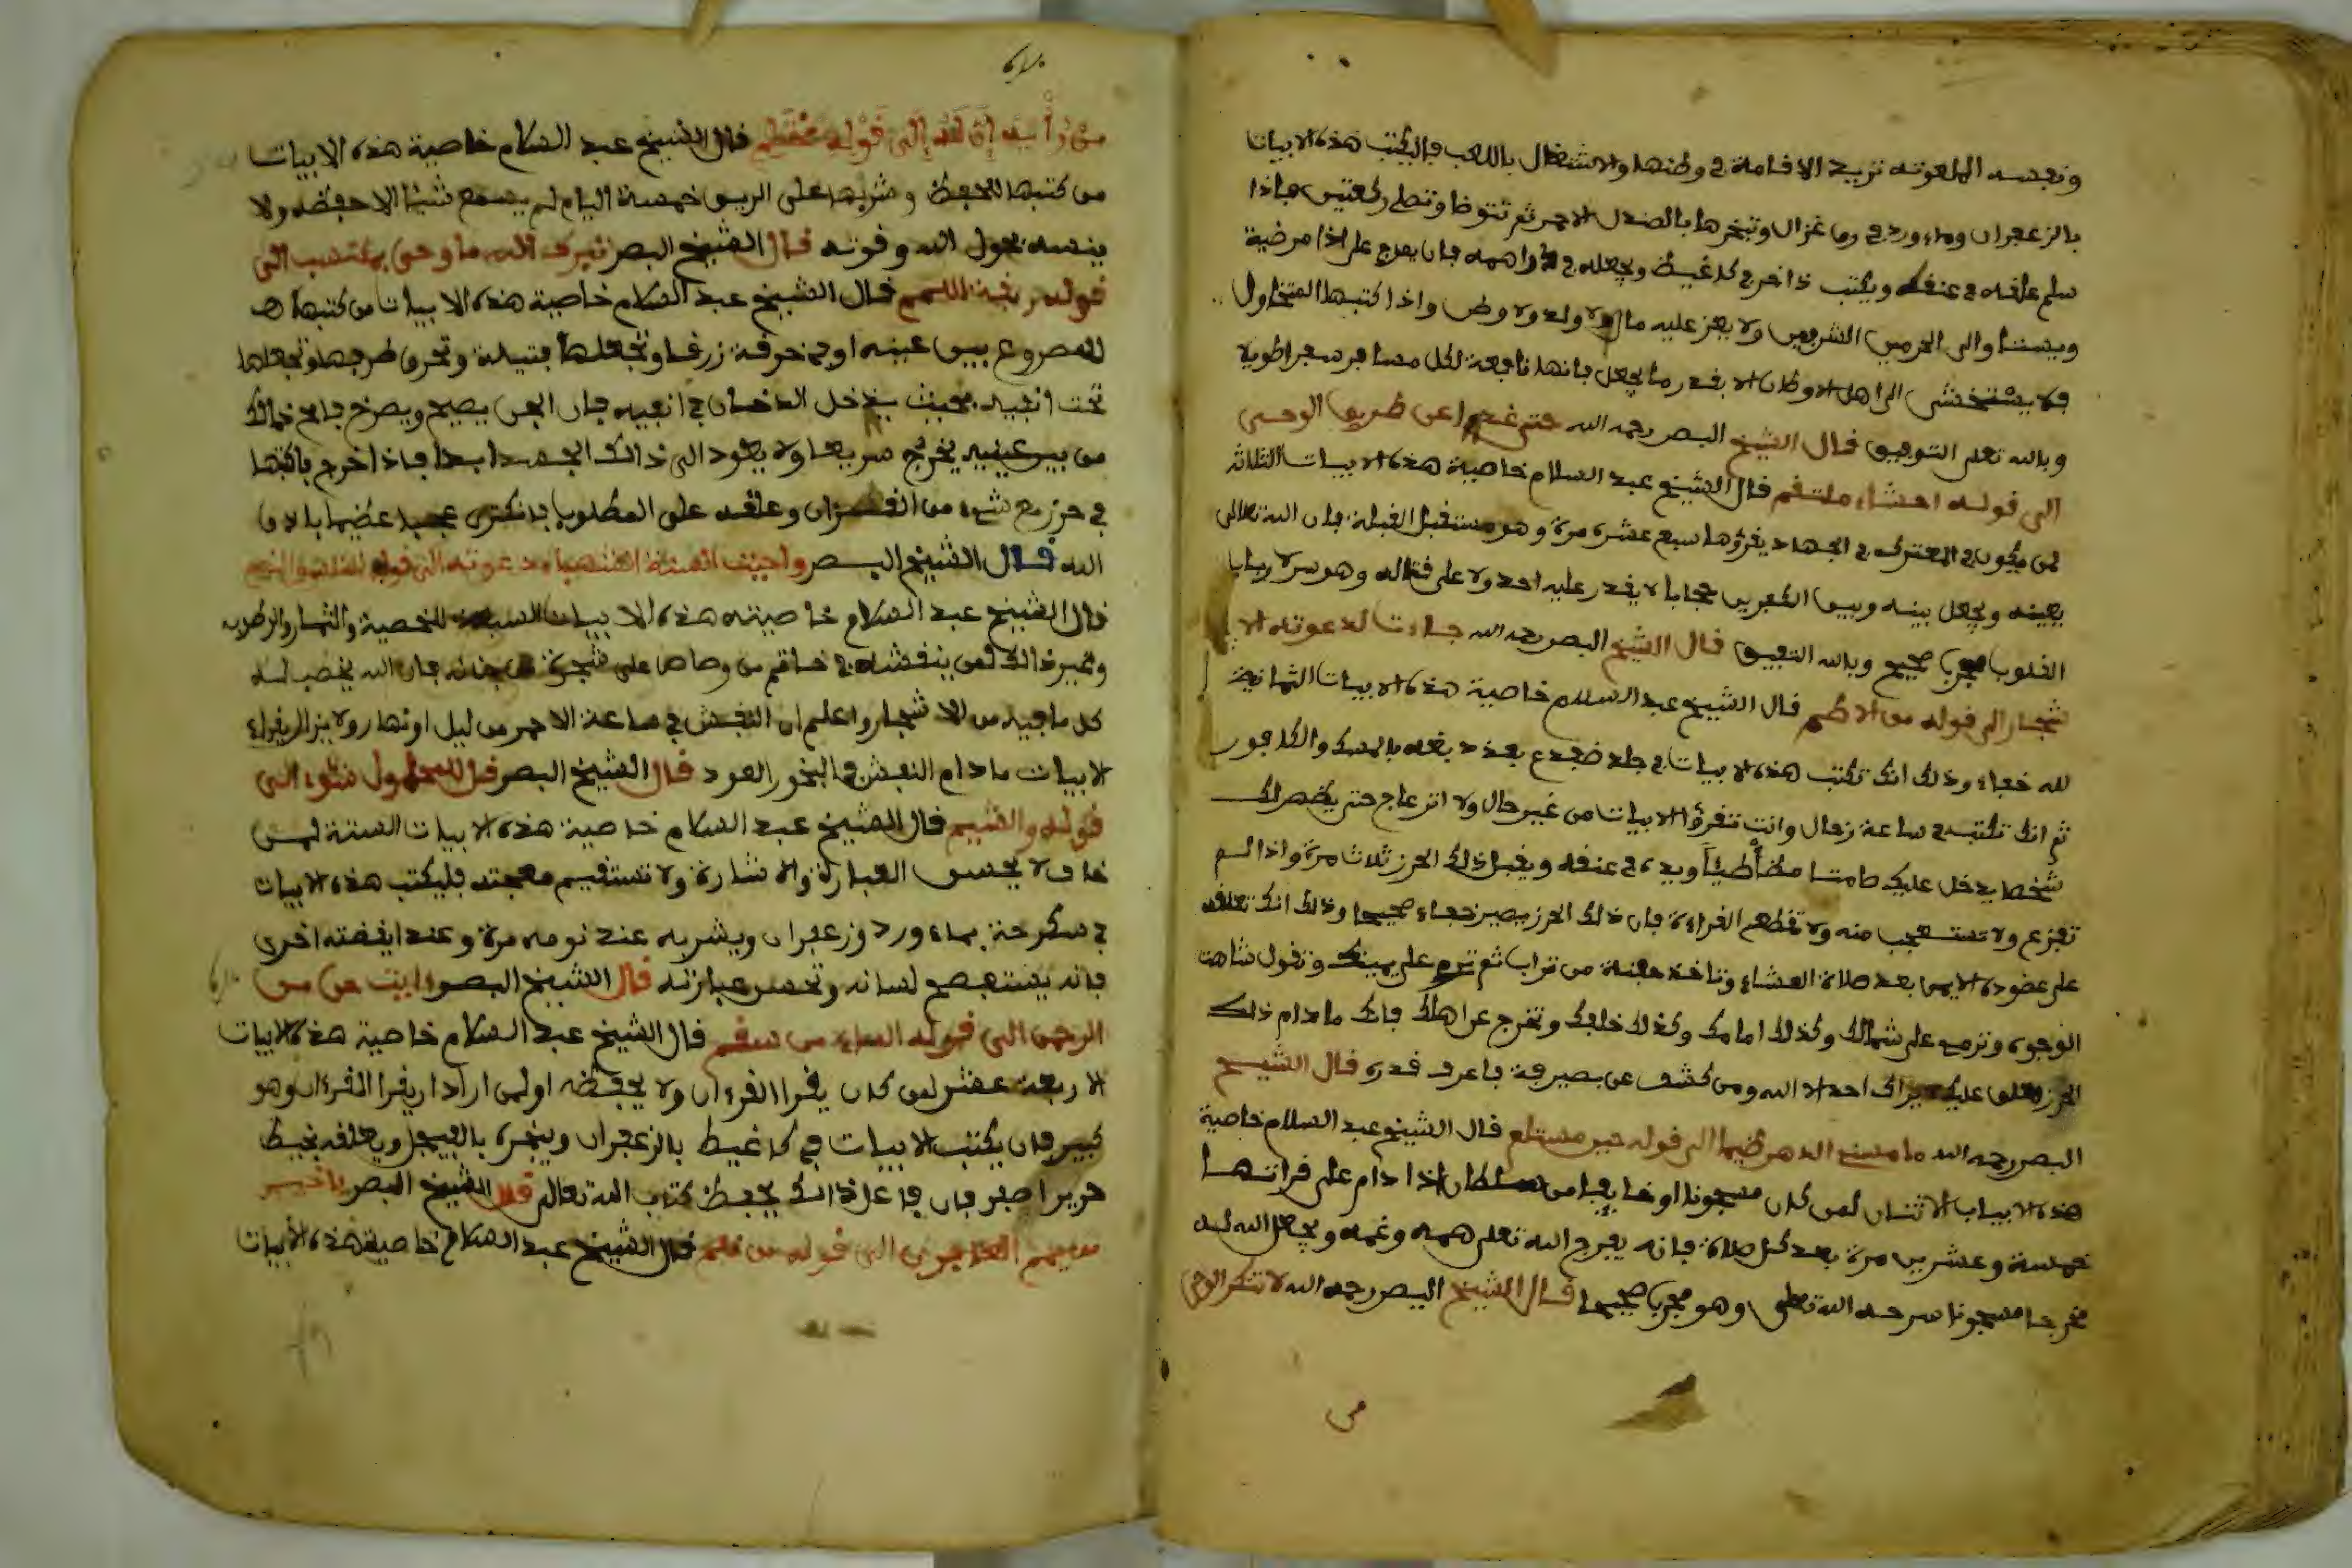 ونفسه الملعونه تريد الاقامة في وطنها والاشتغال باللعب فاليكتب هذه الابيات
بالزعفران وماء ورد في رق غزال وتبخرها بالصندل الاحمر ثم تتوضا وتصلي ركعتين فاذا
سلم علقه في عنقه ويكتب
ولا يعز عليه مال ولا ولد ولا وطن واذا كتبها
الى اهله الاوطان الا بقدر ما يجعل فانها نافعة لكل مسافر سفرا طويلا
وبالله تعلى التوفيق قال الشيخ البصر رحمه الله حتى غدا عن طريق الوحي
الى قوله احشاء ملتقم قال الشيخ عبد السلام خاصية هذه الابيات الثلاثة
لمن يكون في المعترك في الجهاد يقرؤها سبع عشرة مرة وهو مستقبل القبلة فان الله تعالى
يعينه ويجعل بينه وبين الكفرين حجابا لا يقدر عليه احد ولا على قتاله وهو سر لا
القلوب مجرب صحيح وبالله التوفيق قال الشيخ البصر رحمه الله جاءت لدعوته الا
شجار الى قوله من الاطم قال الشيخ عبد السلام خاصية هذه الابيات الثمانية
لله خفاء وذلك انك تكتب هذه الابيات في جلد ضفدع بعد دبغه بالمسك والكافور
ثم انك تكتبه في ساعة زحل وانت تقرؤا الابيات من غير حال ولا انزعاج حتى يظهر لك
شخصا يدخل عليك صامتا مطأطئا ويده في عنقه ويقبل ذلك الحرز ثلاث مرة واذا لم
تفزع ولا تستعجب منه ولا تقطع القراءة فان ذلك الحرز يصير خفاء صحيحا وذلك انك تعلقه
على عضودك الايمن بعد صلاة العشاء وتاخذ حفنة من تراب ثم ترم على يمينك وتقول شاهت
الوجوه وترميه على شمالك وكذلك امامك وكذلك خلفك وتخرج عن اهلك فانك ما دام ذلك
الحرز معلق عليك يراك احد الا الله ومن كشف عن بصيرته فاعرف قدره قال الشيخ
البصر رحمه الله ما مسني الدهر ضيما الى قوله خير مستلم قال الشيخ عبد السلام خاصية
هذه الابيات الاثنان لمن كان مسجونا او خايفا من سلطان اذا دام على قراتها
خمسة وعشرين مرة بعد كل صلاة فانه يفرج الله تعلى همه وغمه ويجعل الله له
مخرجا مسجونا سرحه الله تعلى وهو مجرب صحيحا قال الشيخ البصر رحمه الله لا تنكر الوحي
من
من رأيه ان له الى قوله قال الشيخ عبد السلام خاصية هذه الابيات
من كتبها للحفظ وشربها على الريق خمسة اليام لم يسمع شيئا الا حفظه ولا
ينسه بحول الله وقوته قال الشيخ البصر تبرك الله ما وحي بمكتسب الى
قوله ربقة اللمم قال الشيخ عبد السلام خاصية هذه الابيات من كتبها
للمصروع بين عينيه او في خرقة زرقا وتجعلها فتيلة وتحرق طرفها وتجعلها
تحت انفيه بحيث يدخل الدخان في انفيه فان الجن يصيح ويصرخ
من بين عينيه يخرج سريعا ولا يعود الى ذالك الجسد ابدا فاذا خرج فاكتبها
في حرز مع شيء من القران وعلقه على المطلوب عجبا عظيما باذن
الله قال الشيخ البصر واحيت السنة الشهباء دعوته الى قوله
قال الشيخ عبد السلام خاصيته هذه الابيات للخصبة والثمار والرطوبه
وغير ذالك لمن ينقشه في خاتم من رصاص على شجرة فان الله يخصب له
كل ما فيه من الاشجار واعلم ان النقش في ساعة الاحمر من ليل او نهار ولا يزال يقراء
الابيات ما دام النقش والبخور العود قال الشيخ البصر قل للمحاول شئوء الى
قوله والشيم قال الشيخ عبد السلام خاصية هذه الابيات الستة لمن
خاف لا يحسن العبارة والاشارة ولا تستقيم معجته فليكتب هذه الابيات
في سكرجة بماء ورد وزعفران ويشربه عند نومه مرة وعند ايقضته اخرى
فانه يستفصح لسانه وتحسن عبارته قال الشيخ البصر ءايت حق من
الرحمن الى قوله الماء من سقم قال الشيخ عبد السلام خاصية هذه الابيات
الاربعة عشر لمن كان يقرا القرءان ولا يحفظه او لمن اراد ان يقرا القرءان وهو
كبير فان يكتب الابيات في كاغيط بالزعفران ويبخره بالفيجل ويعلقه بخيط
حرير اصفر فان فاعل ذالك يحفظ كتاب الله تعالى قال الشيخ البصر يا خير
من يمم العافون الى قوله من قلم قال الشيخ عبد السلام خاصية هذه الابيات